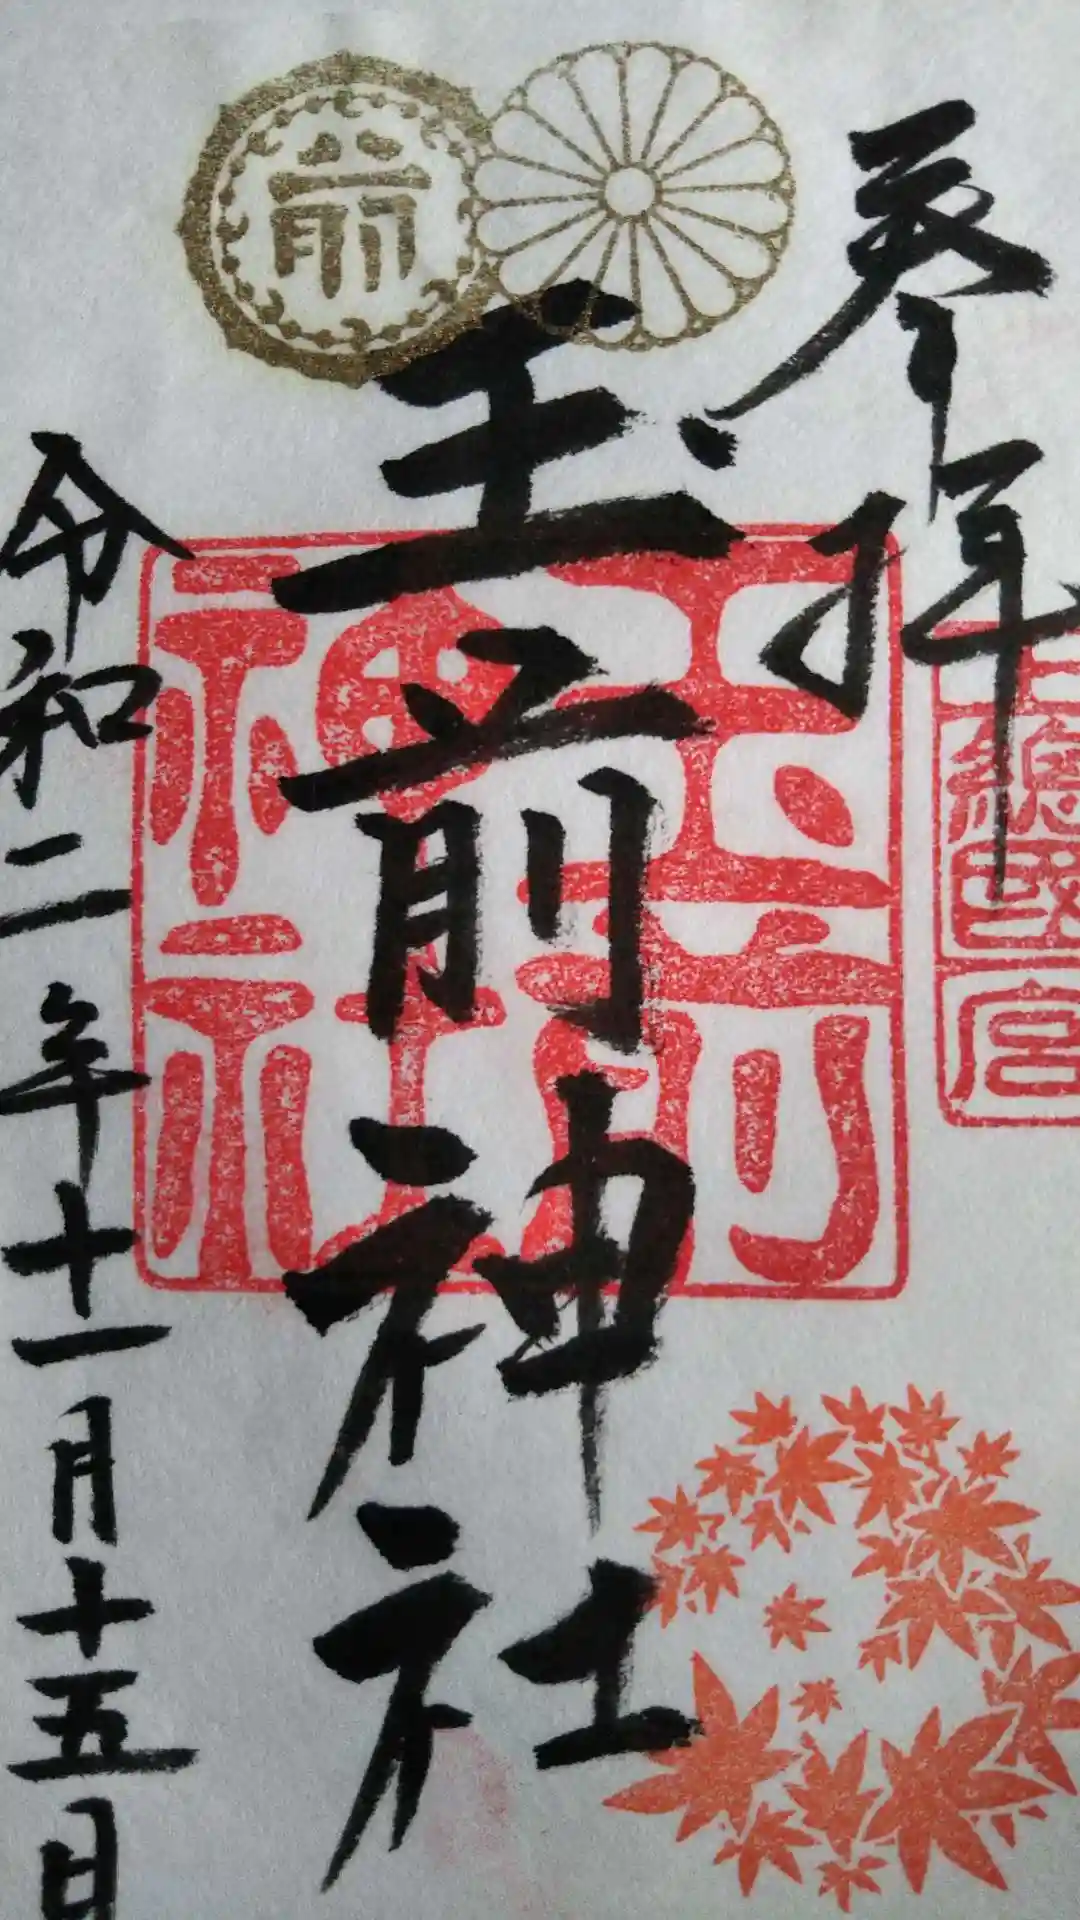 参拝
上總國一宮
前
玉前神社
玉前神社
令和二年十一月十五日